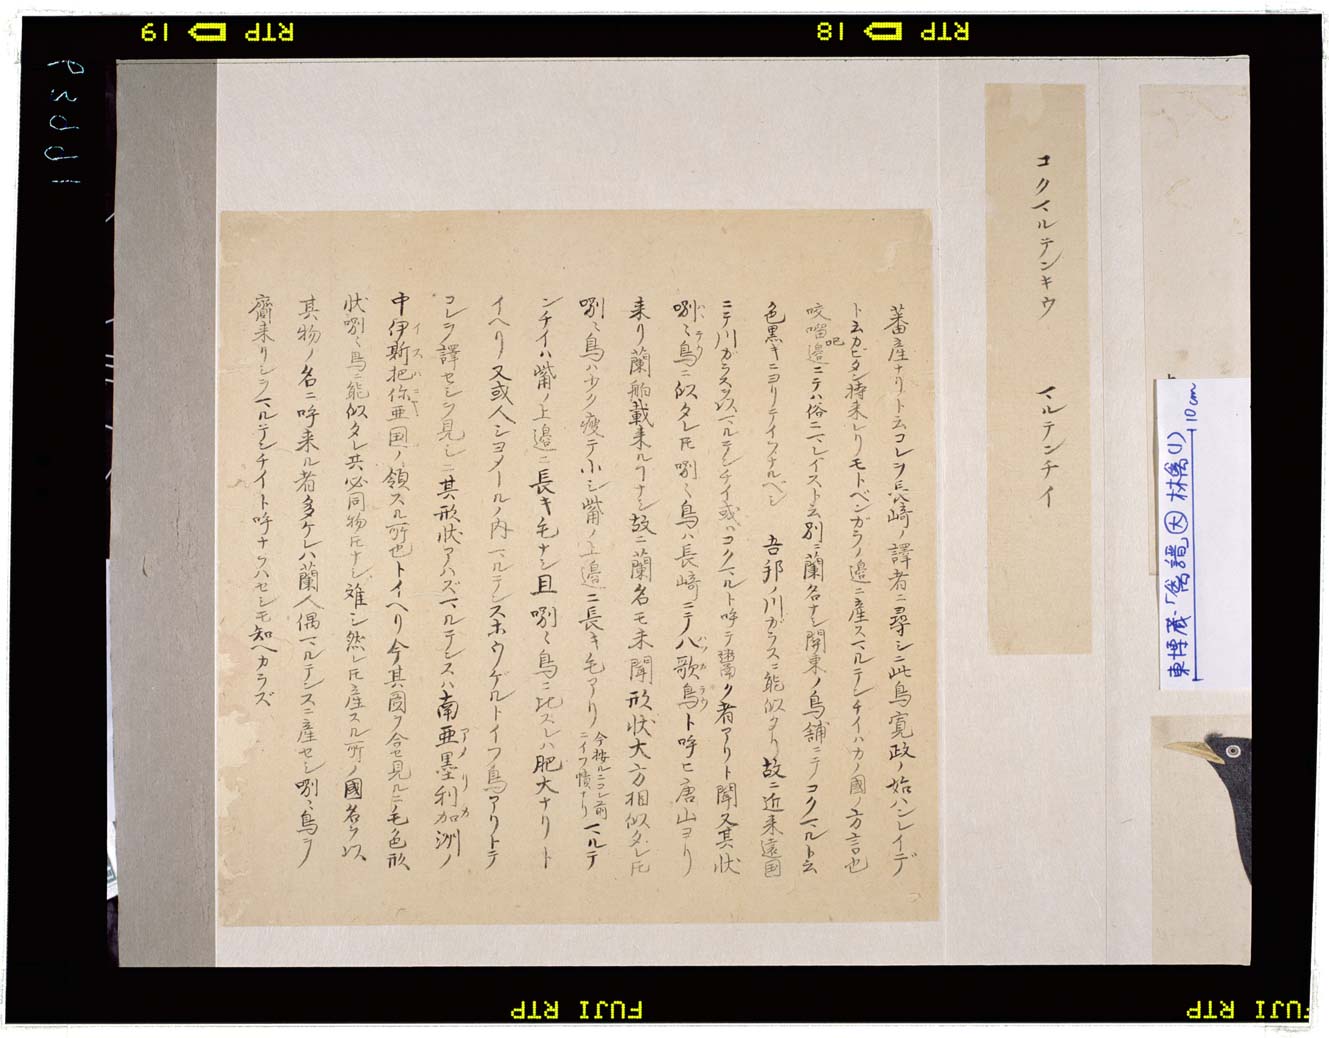 コクマルテンキウ　マルテンチイ
蕃産ナリト云コレヲ長崎ノ譯者ニ尋シニ此鳥寛政ノ始ハンレイデ
ト云カピタン持来レリモトベンガラノ邉ニ産スマルテンチイハカノ國ノ方言也
咬𠺕吧邉ニテハ俗ニマレイスト云別ニ蘭名ナシ関東ノ鳥舗ニテコクマルト云
色黒キニヨリテイフナルベシ　吾邦ノ川ガラスニ能似タリ故ニ近来遠国
ニテ川ガラスヲ以マルテンチイ或ハコクマルト呼テ鬻ク者アリト聞又其状
唎々鳥ニ似タレ𪜈唎々鳥ハ長崎ニテハ歌鳥ト呼ヒ唐山ヨリ
来リ蘭舶載来ルヿナシ故ニ蘭名モ未聞形状大方相似タレ𪜈
唎々鳥ハ少ク痩テ小シ觜ノ上邉ニ長キ毛アリ今按ルニコレ前ニイフ幘ナリマルテ
ンチイハ觜ノ上邉ニ長キ毛ナシ且唎々鳥ニ比スレハ肥大ナリト
イヘリ又或人ショメールノ内マルテンスホウゲルトイフ鳥アリトテ
コレヲ譯セシヲ見シニ其形状アハズマルテンスハ南亜墨利加洲ノ
アメリカ
中伊斯把你亜国ノ領スル所也トイヘリ今其圖ヲ合セ見ルニ毛色形
イスハニヤ
状唎々鳥ニ能似タレ共必同物𪜈ナシ難シ然レ𪜈産スル所ノ國名ヲ以
其物ノ名ニ呼来ル者多ケレハ蘭人偶マルテンスニ産セシ唎々鳥ヲ
齎来リシヲマルテンチイト呼ナラハセシモ知ヘカラズ
東博蔵・「禽譜」(大) 林禽(1)
10cm
RTP 19
RTP 18
FUJI RTP
FUJI RTP